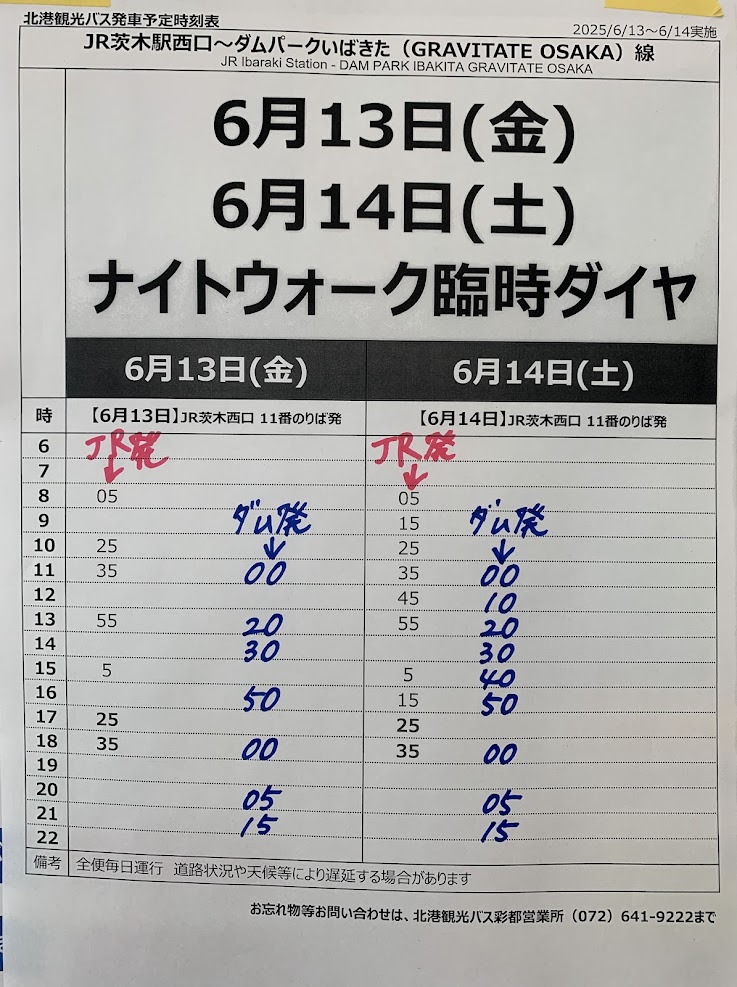 北港観光バス発車予定時刻表
2025/6/13～6/14実施
JR茨木駅西口～ダムパークいばきた（GRAVITATE OSAKA）線
JR Ibaraki Station - DAM PARK IBAKITA GRAVITATE OSAKA
6月13日(金)
6月14日(土)
ナイトウォーク臨時ダイヤ
6月13日(金) 6月14日(土)
時 【6月13日】JR茨木西口 11番のりば発 【6月14日】JR茨木西口 11番のりば発
6 JR発 JR発
7 ↓ ↓
8 05 05
9 ダム発 15 ダム発
10 25 ↓ 25 ↓
11 35 00 35 00
12 45 10
13 55 20 55 20
14 30 30
15 5 5 40
16 50 15 50
17 25 25
18 35 00 35 00
19
20 05 05
21 15 15
22
備考 全便毎日運行 道路状況や天候等により遅延する場合があります
お忘れ物等お問い合わせは、北港観光バス彩都営業所（072）641-9222まで